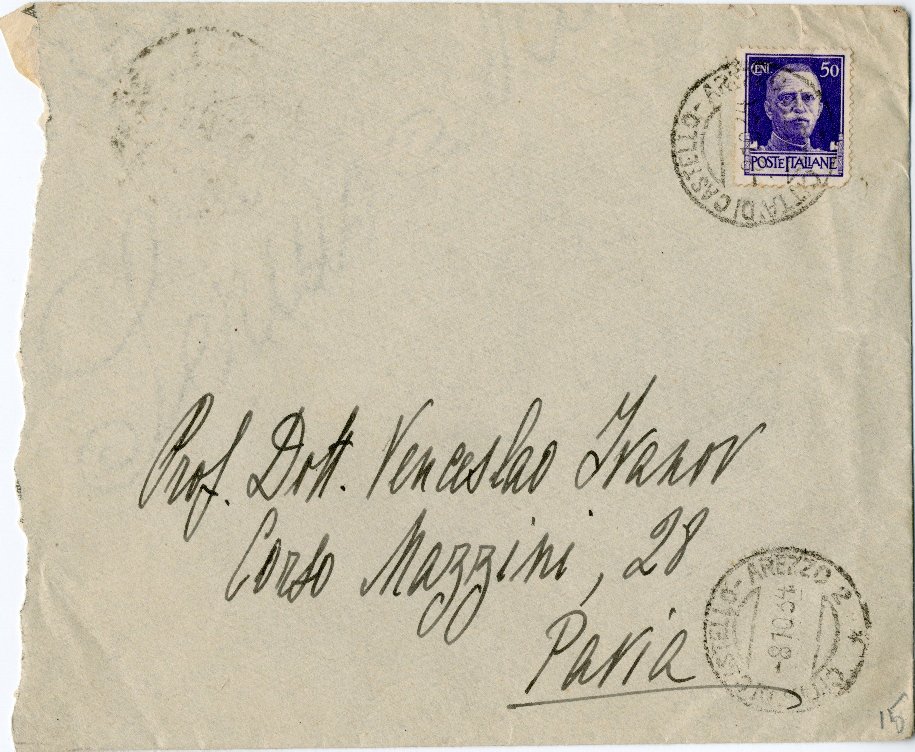 CENT. 50
POSTE ITALIANE
CITTA' DI CASTELLO - AREZZO
Prof. Dott. Venceslao Ivanov
Corso Mazzini, 28
Pavia
CASTELLO - AREZZO 2
-8.10.34
15